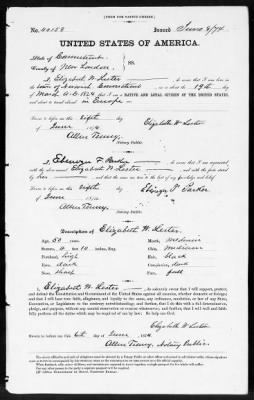 [FORM FOR NATIVE CITIZEN.]
No. Issued June 8/74
UNITED STATES OF AMERICA.
State of Connecticut
County of New London } SS.
I, Elizabeth W. Lester, do swear that I was born in
town of Norwich Connecticut on or about the 19th day
of March A.D. 1824 that I am a NATIVE AND LOYAL CITIZEN OF THE UNITED STATES,
and about to travel abroad in Europe
Sworn to before me this fifth day
of June 1874 Elizabeth W. Lester
Allen Tenny,
Notary Public.
I, Ebenezer F. Parker, do swear that I am acquainted
with the above named Elizabeth W. Lester and with the facts stated
by her to the best of my knowledge and belief.
Sworn to before me this fifth day
of June 1874 Ebenezer F. Parker
Allen Tenny,
Notary Public.
Description of Elizabeth W. Lester.
Age, 50 years. Mouth, medium
Stature, 4 ft 10 inches, Eng. Chin, medium
Forehead, high Hair, black
Eyes, dark Complexion, dark
Nose, sharp Face, full
I, Elizabeth W. Lester, do solemnly swear that I will support, protect
and defend the Constitution and Government of the United States against all enemies, whether domestic or foreign;
and that I will bear true faith, allegiance, and loyalty to the same, any ordinance, resolution, or law of any State,
Convention, or Legislature to the contrary notwithstanding; and further, that I do this with a full determination,
pledge, and purpose, without any mental reservation or evasion whatsoever; and further, that I will well and faith-
fully perform all the duties which may be required of me by law. So help me God.
Elizabeth W. Lester
Sworn to before me this 6th day of June 1874
Allen Tenny, Notary Public.